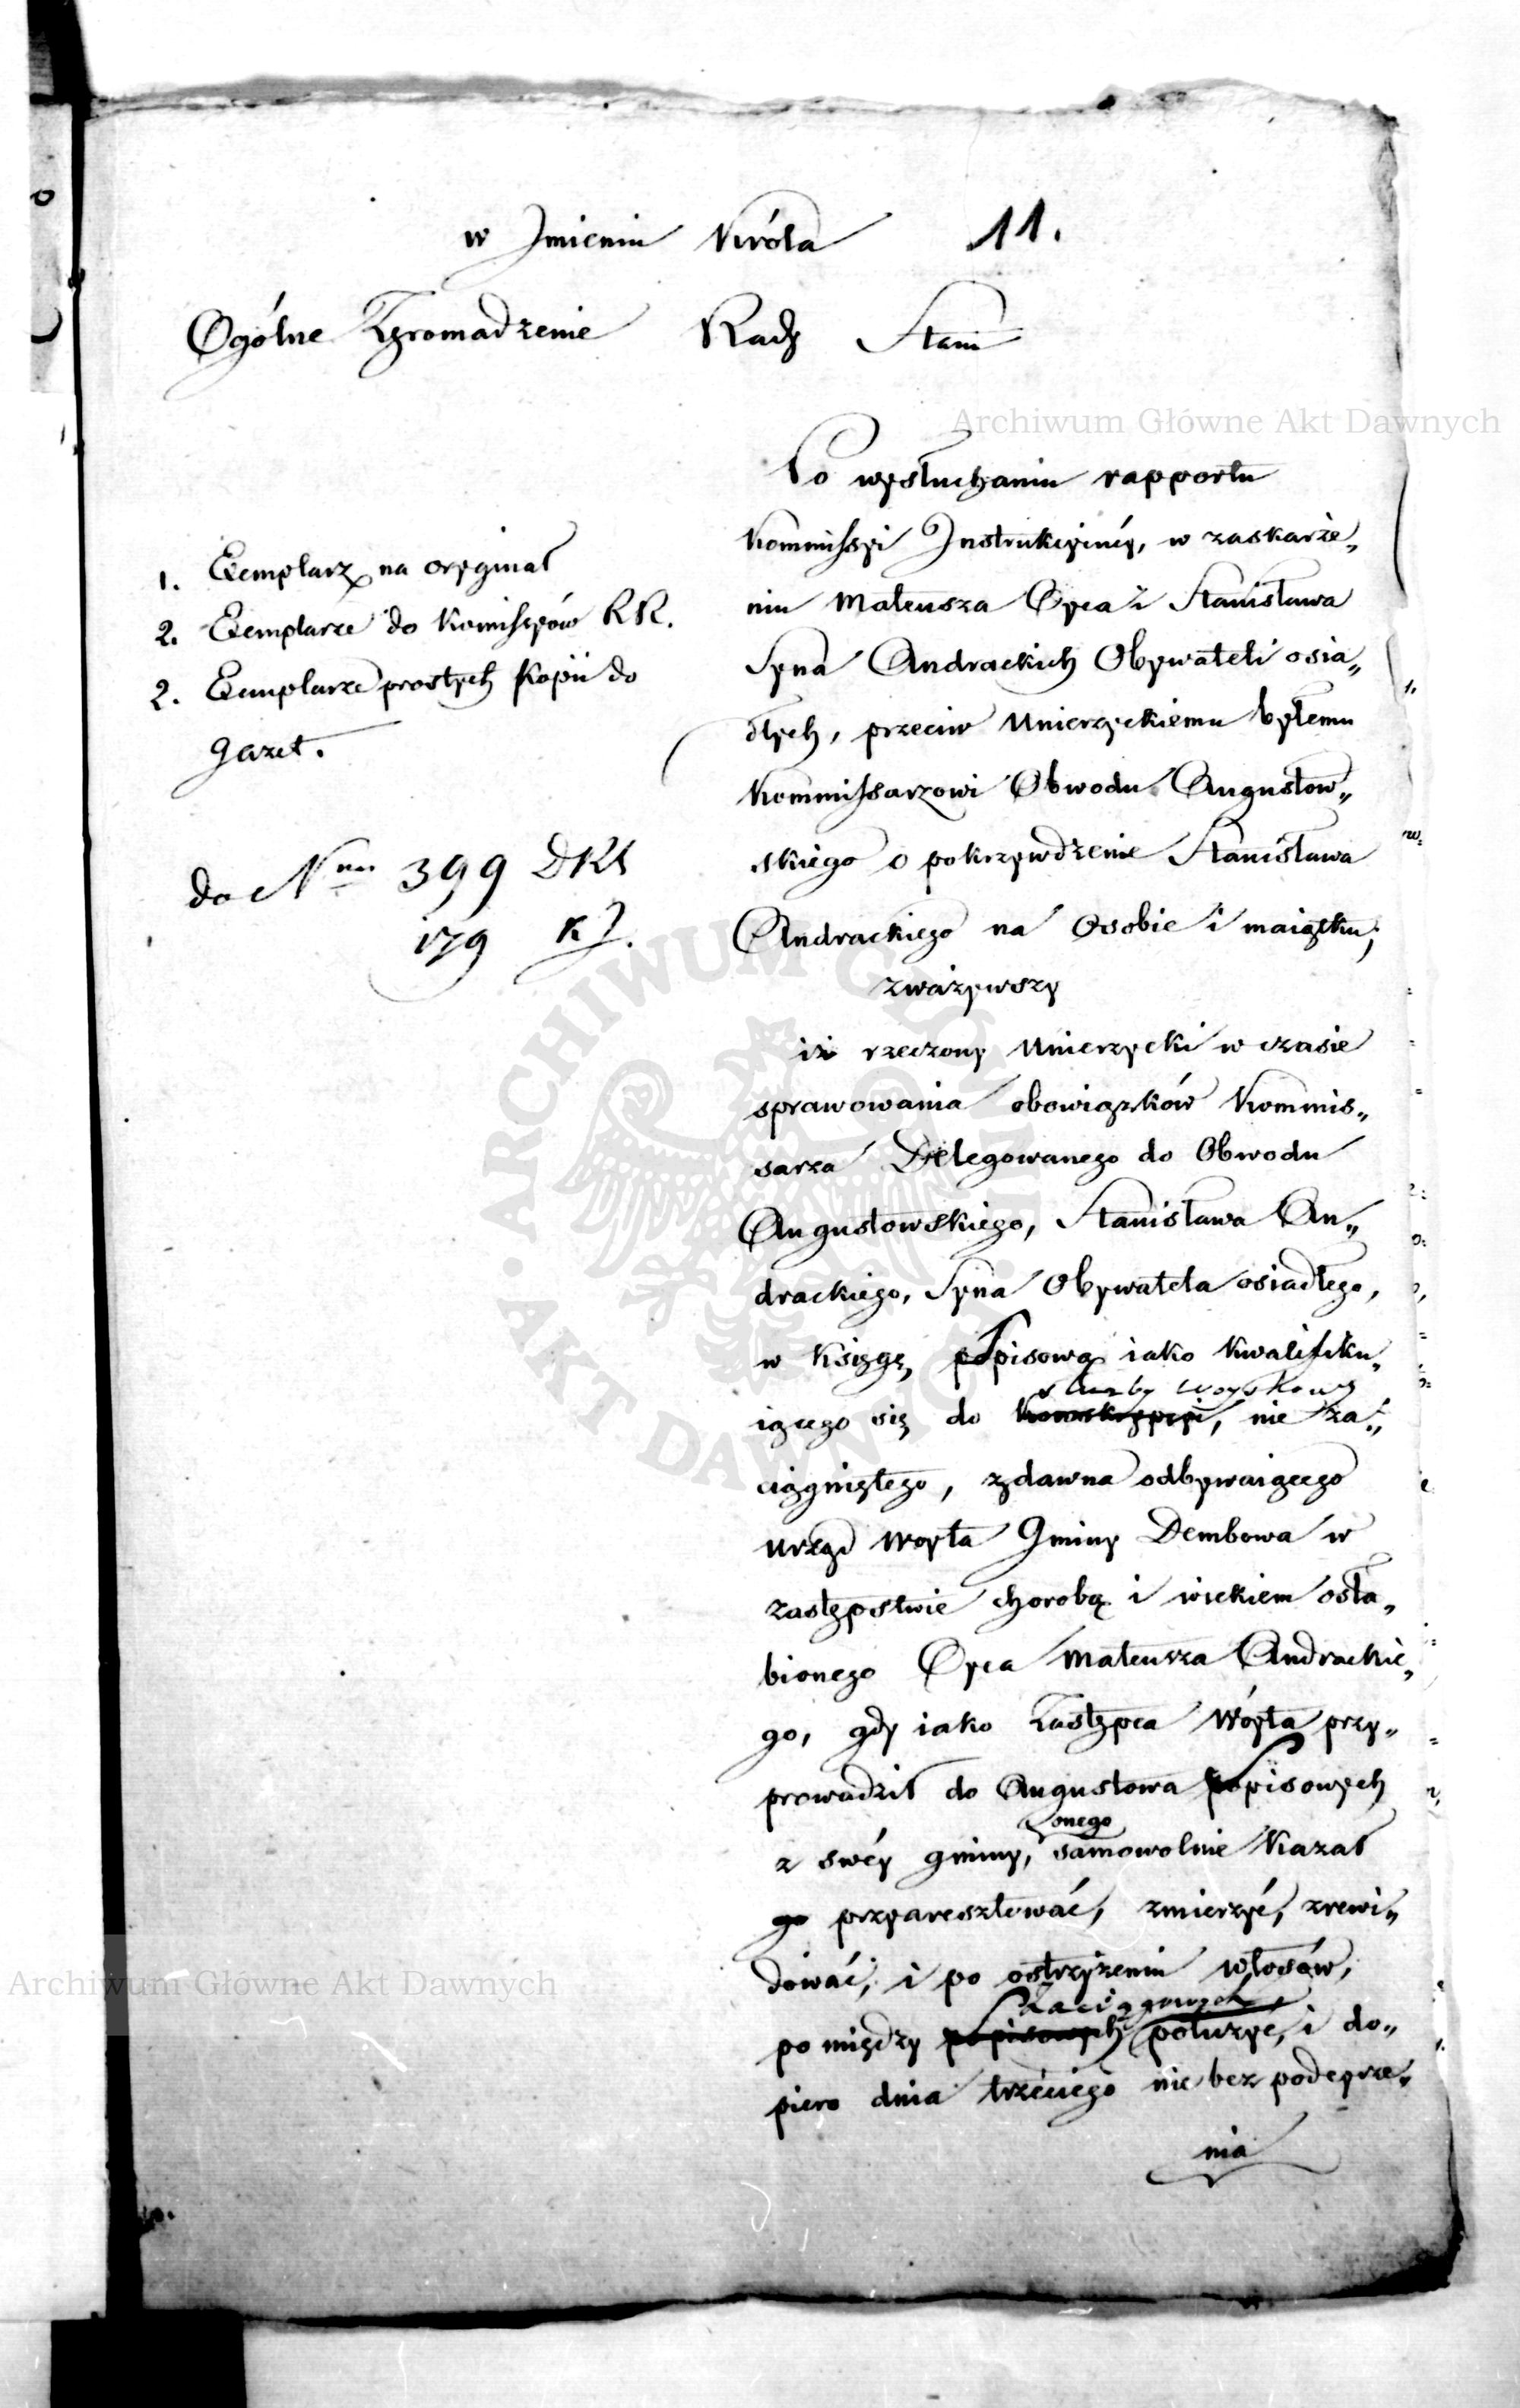 w Jmieniu Króla 11.
Ogólne Zgromadzenie Rady Stanu
1. Exemplarz na oryginał
2. Exemplarze do Komissyów RR.
2. Exemplarze prostych kopii do
Gazet.
do Nru 399 DKS
179 KJ.
Po wysłuchaniu rapportu
Kommissyi Jnstrukcyinéy, w zaskarże„
niu Mateusza Oyca i Stanisława
Syna Andrackich Obywateli osia„
dłych, przeciw Mnierzyckiemu byłemu
Kommissarzowi Obwodu Augustow„
skiego o pokrzywdzenie Stanisława
Andrackiego na Osobie i maiątku;
zważywszy
iż rzeczony Mnierzycki w czasie
sprawowania obowiązków Kommis„
sarza Delegowanego do Obwodu
Augustowskiego, Stanisława An„
drackiego, Syna Obywatela osiadłego,
w Księgę Spisową iako kwalifiku„
służby woyskowey
iącego się do konskrypcyi, nie za„
ciągniętego, zdawna odbywaiącego
urząd Woyta Gminy Dembowa w
zastępstwie chorobą i wiekiem osła„
bionego Oyca Mateusza Andrackie„
go, gdy iako Zastępca Wóyta przy„
prowadził do Augustowa Spisowych
onego
z swéy gminy, samowolnie kazał
go przyaresztować, zmierzyć, zrewi„
dować, i po ostrzyżeniu włosów,
zaciągowych
pomiędzy popisowych położyć, i do„
piero dnia trzeciego nie bez podeyrze„
nia
Archiwum Główne Akt Dawnych
ARCHIWUM GŁÓWNE · AKT DAWNYCH ·
Archiwum Główne Akt Dawnych